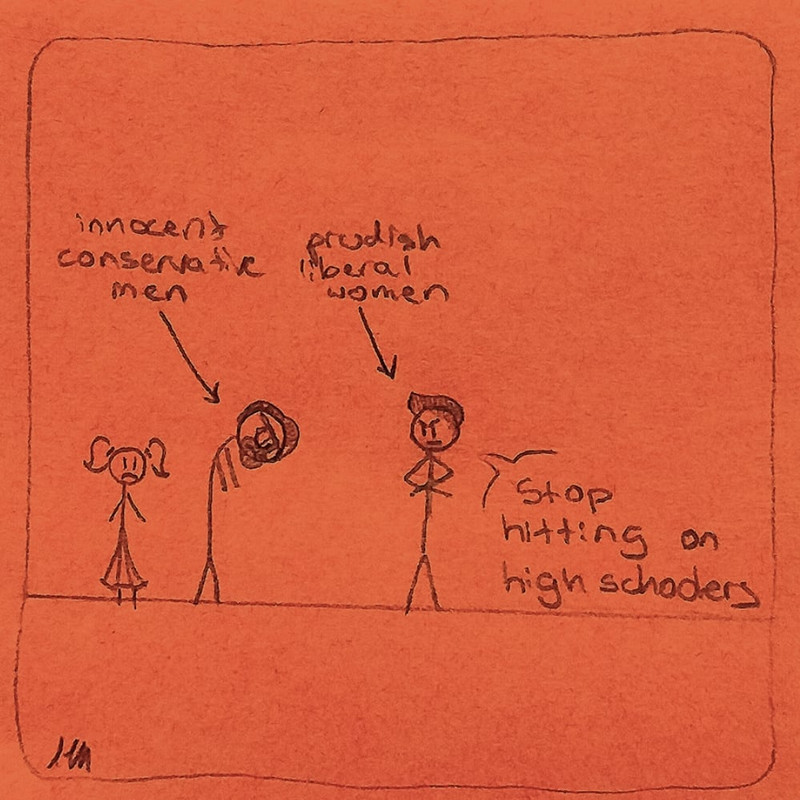 innocent
conservative
men
prudish
liberal
women
Stop
hitting on
high schoolers